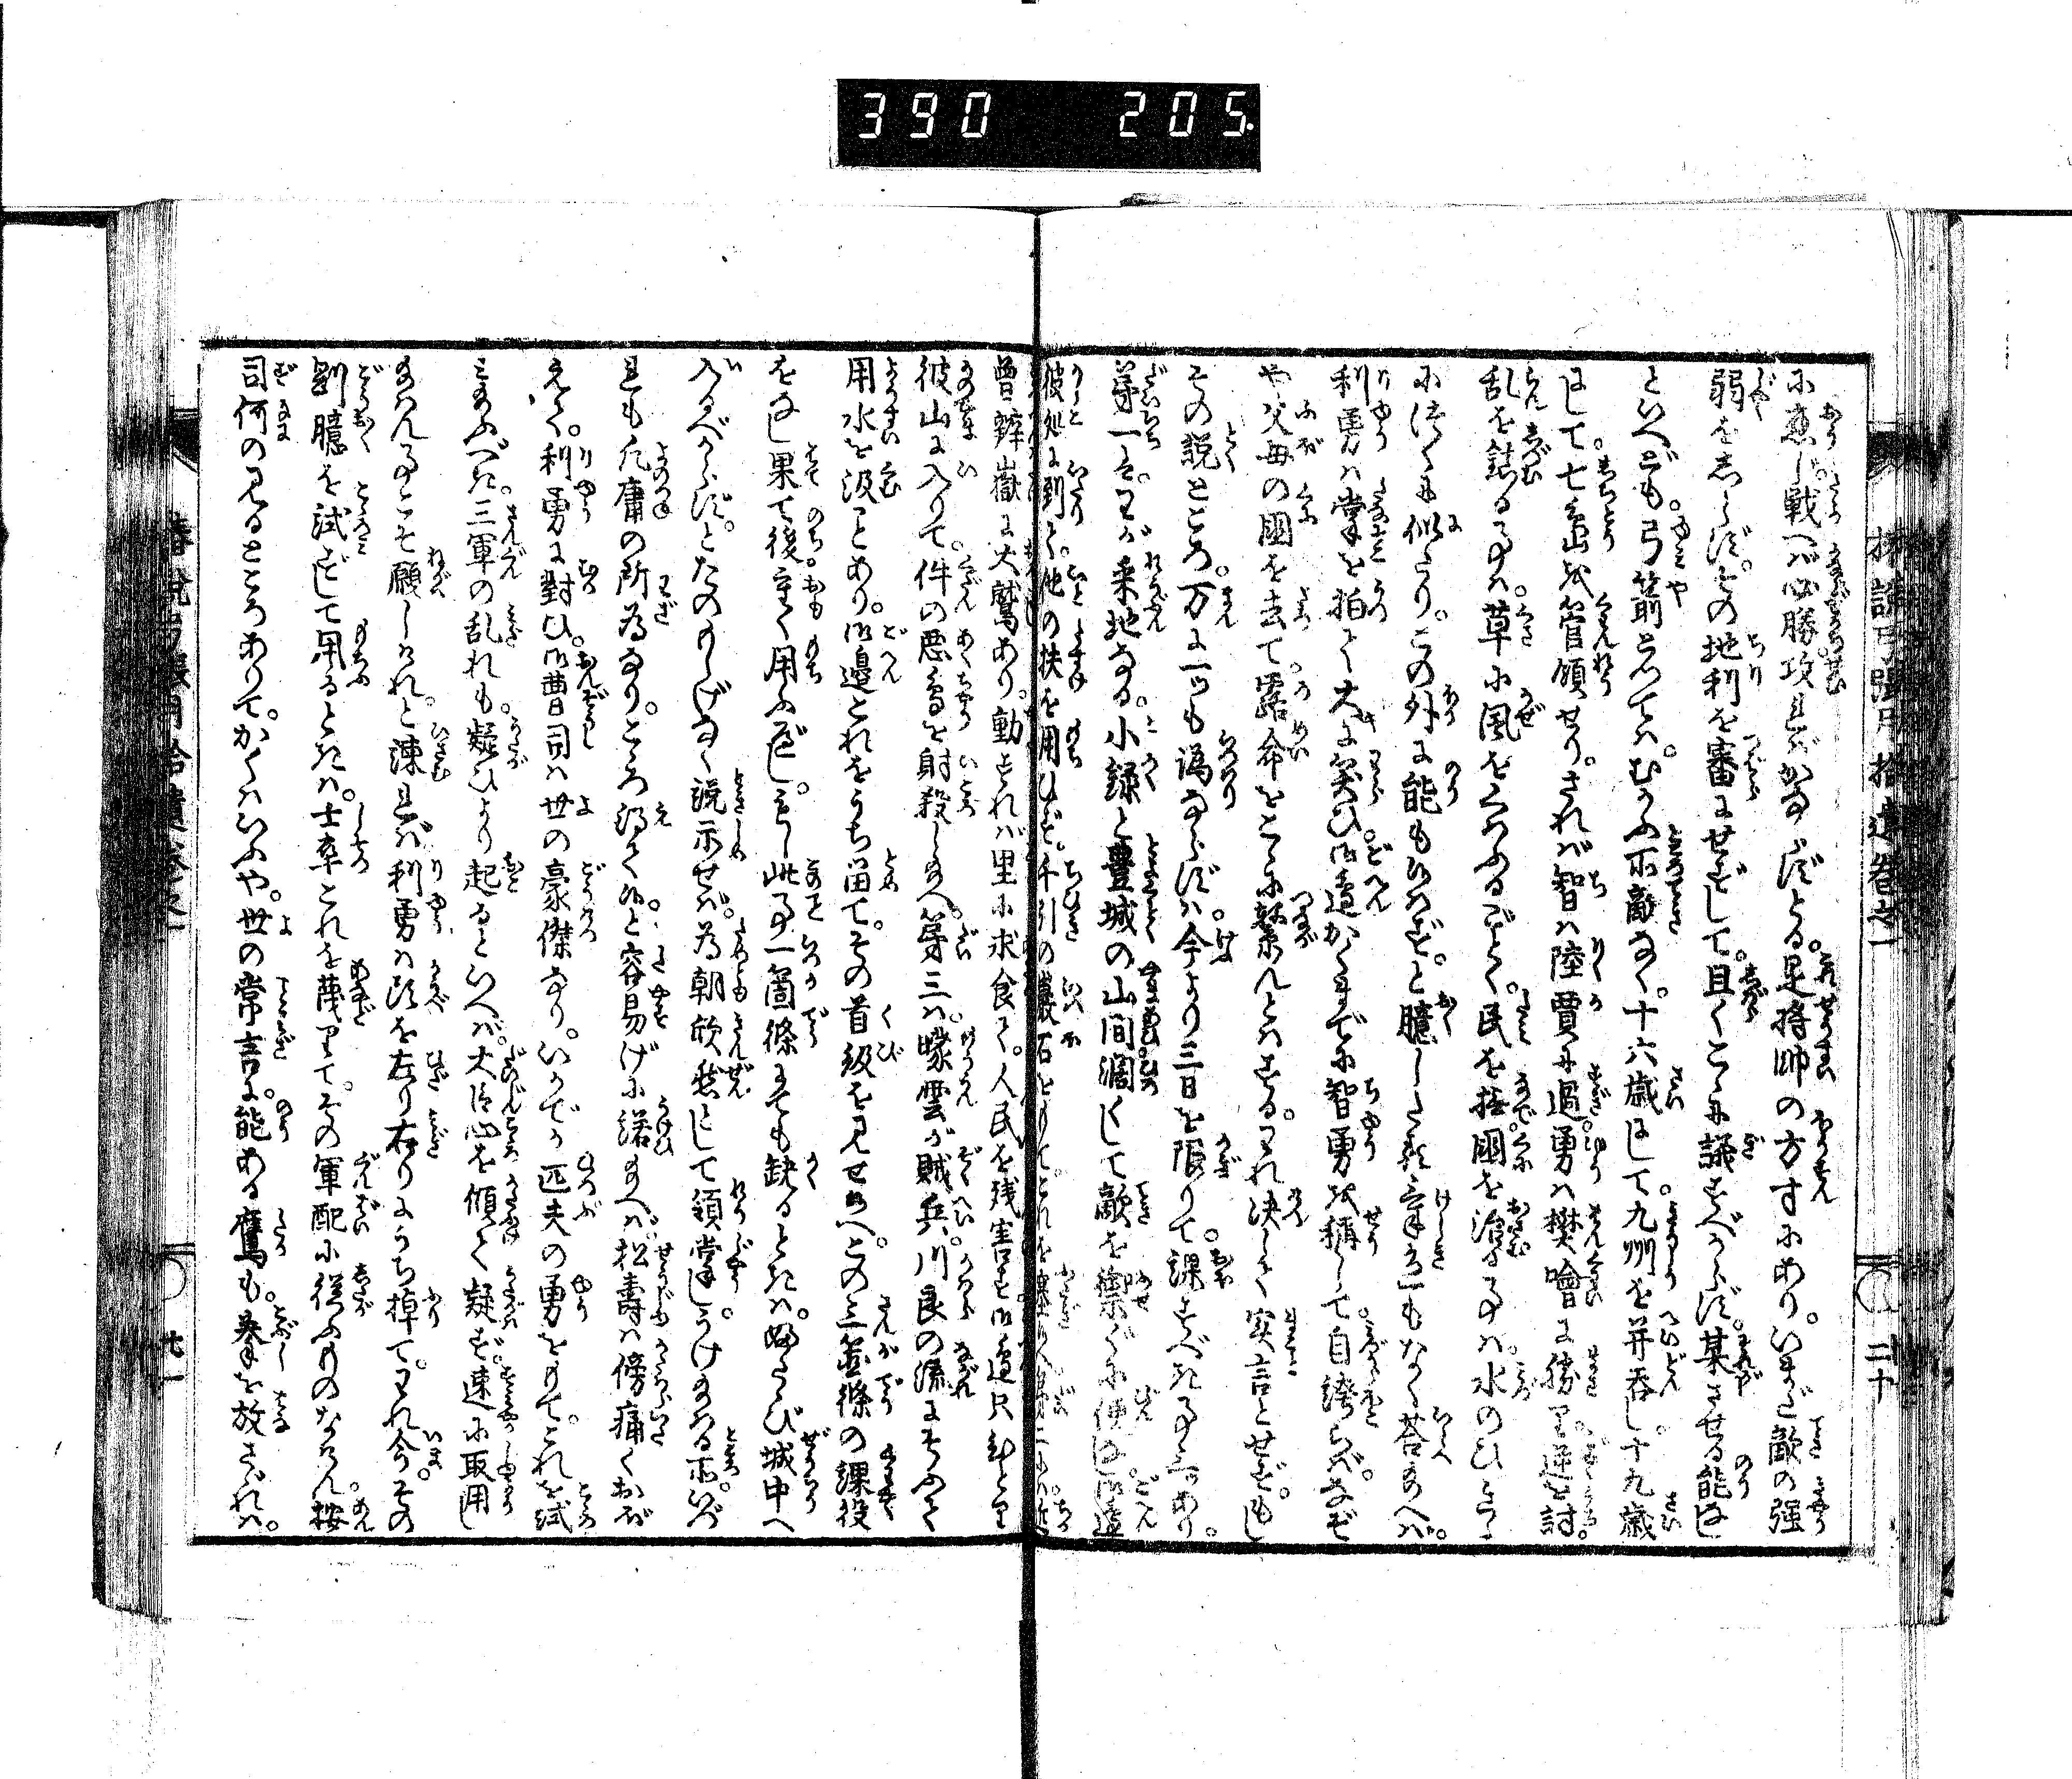 390 205.
椿説弓張月拾遺巻之一
二十
に應じ。戦へば必勝。攻ればかならずとる。是将帥の方寸にあり。いまだ敵の強
弱をしらず。その地利を審にせずして。且くこゝに議すべからず。某させる能なし
といへども。弓箭とつては。むかふ所敵なく。十六歳にして。九州を并呑し。十九歳
にして。七嶋を管領せり。されば智は陸賈に過。勇は樊噲に勝り。逆を討。
乱を鎮る事は。草に風をくはふるごとく。民を撫。國を治る事は。水のひくき
に就くに似たり。この外に能も候はずと臆したる氣色もなく荅給へば。
利勇は掌を拍て大に笑ひ。御邊かくまでに智勇を稱して。自誇らば。などて
や父母の國を去て。露命をこゝに繋んとはする。われ決して実言とせず。もし
その説ところ。万に一ツも偽ならずは。今より三日を限りて。課すべき事三ツあり。
第一はわが采地なる。小録と豊城の山間濶くして敵を禦ぐに便なし。御邊
彼処に到て。他の扶を用ひず。千引の巖石をもてこれを塞
曽辧嶽に大鷲あり。動すれば里に求食て。人民を残害す。御邊只ひとり
彼山に入りて。件の悪鳥を射殺し給へ。第三は曚雲が賊兵。川良の流にそふて
用水を汲ことあり。御邊これをうち畄て。その首級を見せ給へ。この三箇條の課役
をなし果て後。重く用ふべし。もし此事一箇條にても缺るときは。ふたゝび城中へ
入るべからず。とたのもしげなく説示せば。為朝欣然として領掌し。うけ給はる所。いづ
れも凡庸の所為なり。ところ得て候と容易げに諾給へば。松壽は傍痛くおぼ
えて。利勇に對ひ。御曹司は世の豪傑なり。いかでか匹夫の勇をもて。これを試
み給ふべき。三軍の乱れも。疑ひより起るといへば。大臣心を傾て疑ず。速に取用し
給はん事こそ願しけれ。と諌れば利勇は頭を左り右りにうち掉て。われ今。その
剛臆を試ずして用るときは。士卒これを蔑りて。その軍配に従ふものなからん。按
司何の見るところありて。かくはいふや。世の常言に。能ある鷹も。拳を放さゞれば。
椿説弓張月拾遺巻之一
廿一